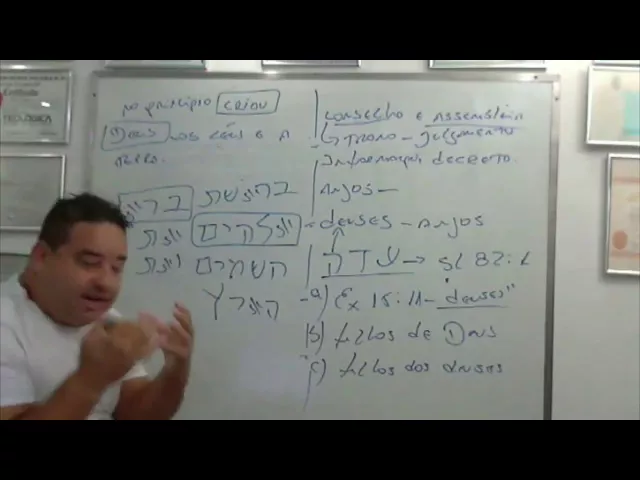 no princípio criou
Deus os céus e a
terra.
בראשית ברא
אלהים את
השמים ואת
הארץ
conselho e Assembléia
↳ trono – julgamento
Informação, decreto.
Anjos –
= deuses – Anjos
עדה → SL 82:1
a) Ex 15:11 – "deuses"
b) filhos de Deus
c) filhos dos deuses